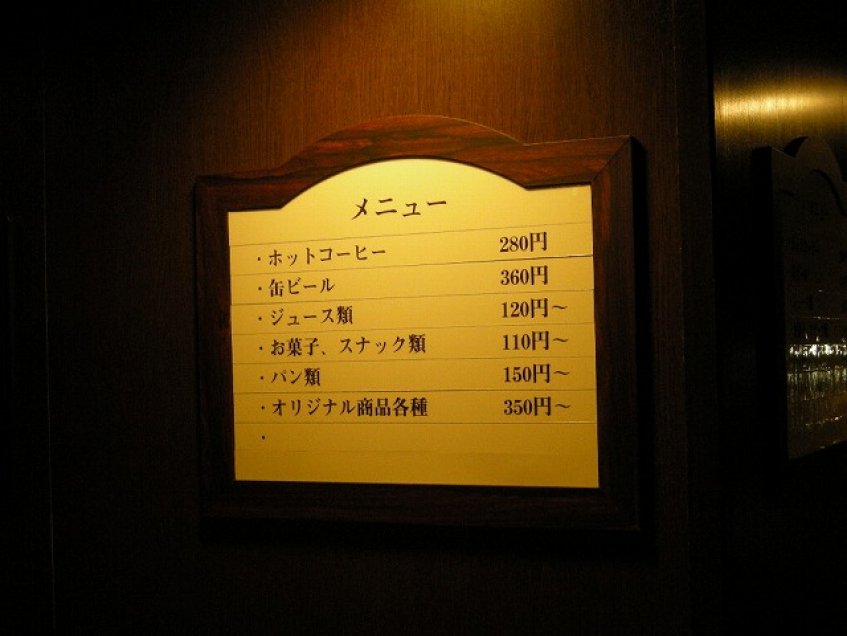 メニュー
・ホットコーヒー 280円
・缶ビール 360円
・ジュース類 120円～
・お菓子、スナック類 110円～
・パン類 150円～
・オリジナル商品各種 350円～
・